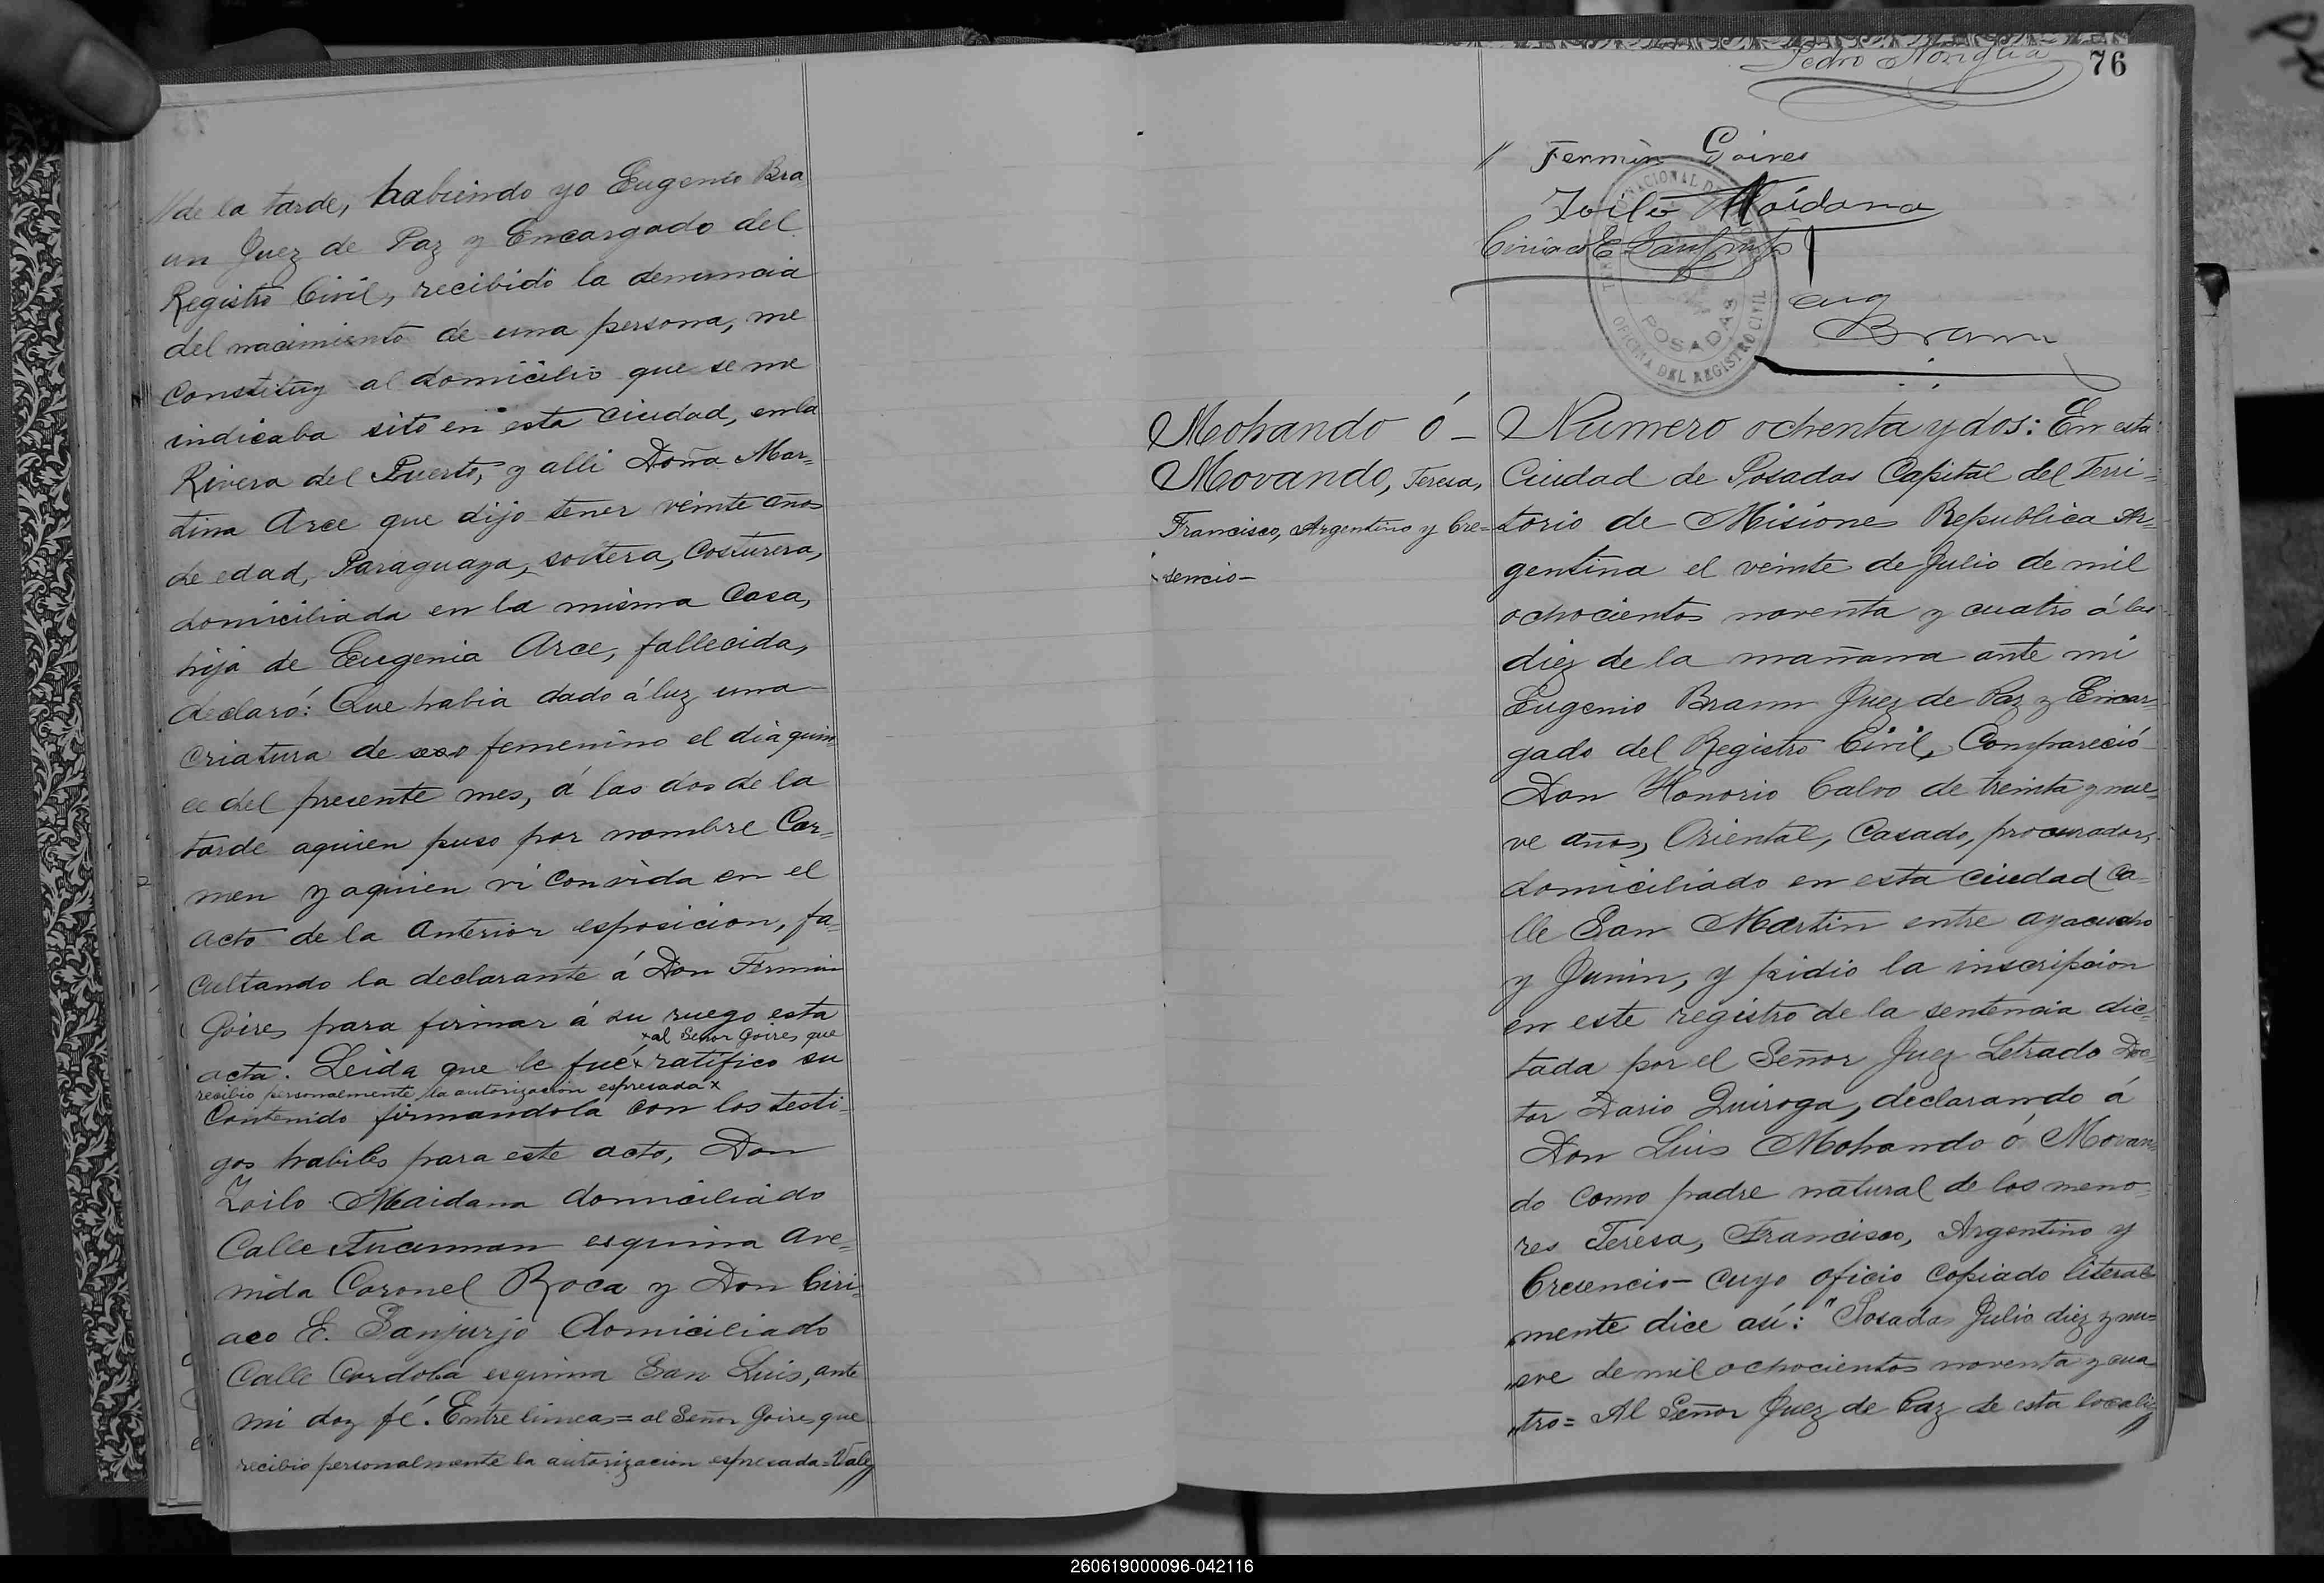 //de la tarde, habiendo yo Eugenio Bra
un Juez de Paz y Encargado del
Registro Civil, recibido la denuncia
del nacimiento de una persona, me
Constituy al domicilio que se me
indicaba sito en esta Ciudad, en la
Rivera del Puerto, y alli Doña Mar=
tina Arce que dijo tener veinte años
de edad, Paraguaya, soltera, Costurera,
domiciliada en la misma Casa,
hija de Eugenia Arce, fallecida,
declaró: Que habia dado á luz una
criatura de sexo femenino el dia quin
ce del presente mes, á las dos de la
tarde aquien puso por nombre Car=
men y aquien vi con vida en el
acto de la anterior esposicion, fa=
cultando la declarante á Don Fermin
Goires para firmar á su ruego esta
×al Señor Goires que
acta. Leida que le fué× ratifico su
recibio personalmente la autorizacion espresada×
Contenido firmandola con los testi=
gos habiles para este acto, Don
Zoilo Maidana domiciliado
Calle Tucuman esquina Ave=
nida Coronel Roca y Don Ciri=
aco E. Sanjurjo domiciliado
Calle Cordoba esquina San Luis, ante
mi doy fé. Entre lineas= al Señor Goires que
recibio personalmente la autorizacion espresada=Vale//
76
Pedro Noriglia
// Fermin Goires
Zoilo Maidana
Ciriaco E Sanjurjo
NACIONAL DE
POSADAS
OFICINA DEL REGISTRO CIVIL
Eug
Braun
Mohando ó –
Movando, Teresa,
Francisco, Argentino y Cre=
sencio–
Numero ochenta y dos: En esta
Ciudad de Posadas Capital del Terri=
torio de Misiones Republica Ar=
gentina el veinte de Julio de mil
ochocientos noventa y cuatro á las
diez de la mañana ante mi
Eugenio Braun Juez de Paz y Encar=
gado del Registro Civil, Compareció
Don Honorio Calvo de treinta y nue=
ve años, Oriental, Casado, procurador,
domiciliado en esta ciudad Ca=
lle San Martin entre ayacucho
y Junin, y pidio la inscripcion
en este registro de la sentencia dic=
tada por el Señor Juez Letrado Doc=
tor Dario Quiroga, declarando á
Don Luis Mohando ó Movan=
do como padre natural de los meno=
res Teresa, Francisco, Argentino y
Cresencio– cuyo oficio copiado literal=
mente dice asi: "Posadas Julio diez y nu=
"eve de mil ochocientos noventa y cua
"tro= Al Señor Juez de Paz de esta locali//
260619000096-042116